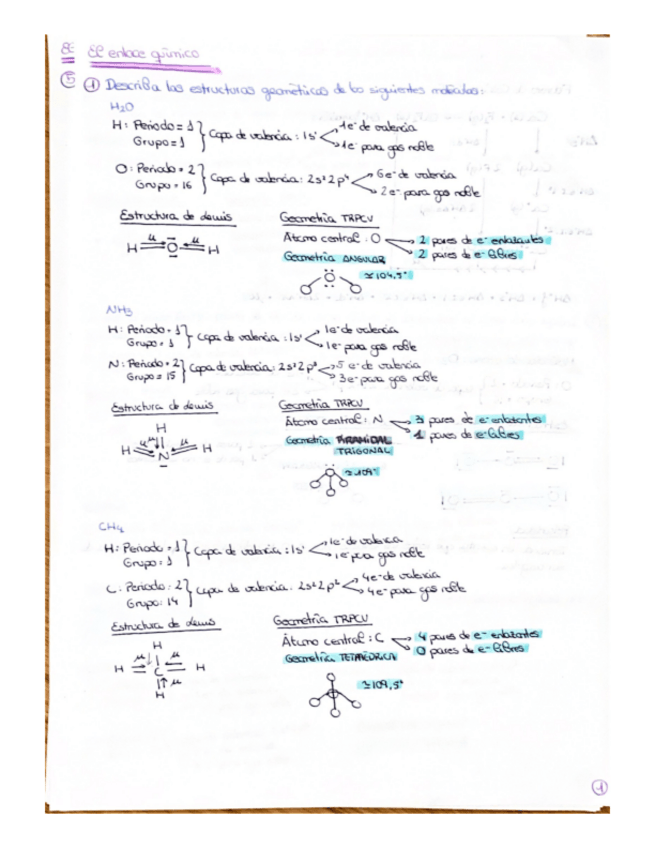 8: El enlace químico
5 1 Describa las estructuras geométricas de las siguientes moléculas:
H2O
H: Periodo = 1
Grupo = 1
Capa de valencia: 1s¹
1e⁻ de valencia
1e⁻ para gas noble
O: Periodo = 2
Grupo = 16
Capa de valencia: 2s² 2p⁴
6e⁻ de valencia
2e⁻ para gas noble
Estructura de Lewis
Geometría TRPCV
H μ O μ H
Átomo central: O
2 pares de e⁻ enlazantes
2 pares de e⁻ libres
Geometría ANGULAR
O
≃104,5°
NH3
H: Periodo = 1
Grupo = 1
Capa de valencia: 1s¹
1e⁻ de valencia
1e⁻ para gas noble
N: Periodo = 2
Grupo = 15
Capa de valencia: 2s² 2p³
5 e⁻ de valencia
3e⁻ para gas noble
Estructura de Lewis
Geometría TRPCV
H
H μ N μ H
μ
Átomo central: N
3 pares de e⁻ enlazantes
1 pares de e⁻ libres
Geometría PIRAMIDAL
TRIGONAL
≃109°
CH4
H: Periodo = 1
Grupo = 1
Capa de valencia: 1s¹
1e⁻ de valencia
1e⁻ para gas noble
C: Periodo: 2
Grupo: 14
Capa de valencia: 2s² 2p²
4e⁻ de valencia
4e⁻ para gas noble
Estructura de Lewis
Geometría TRPCV
H
μ μ
H C H
μ
H
Átomo central: C
4 pares de e⁻ enlazantes
0 pares de e⁻ libres
Geometría TETRAÉDRICA
≃109,5°
1